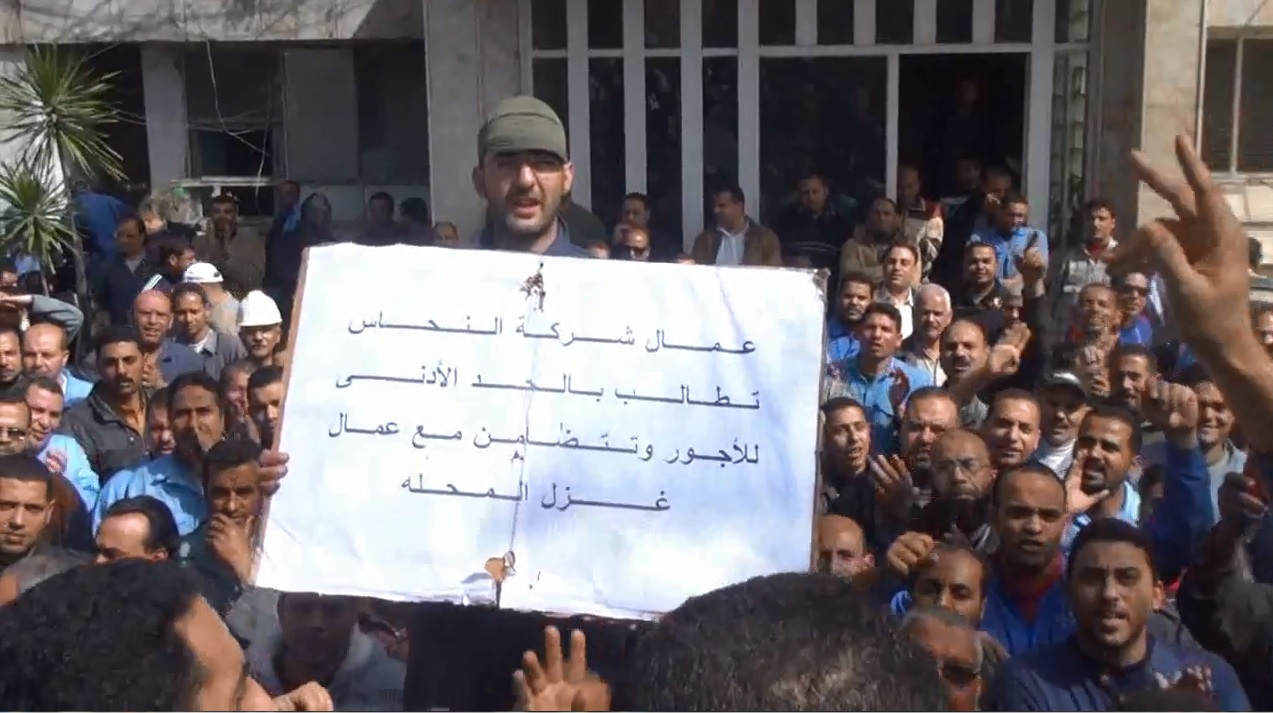 عمال شركة النحاس
تطالب بالحد الأدنى
للأجور وتتضامن مع عمال
غزل المحله